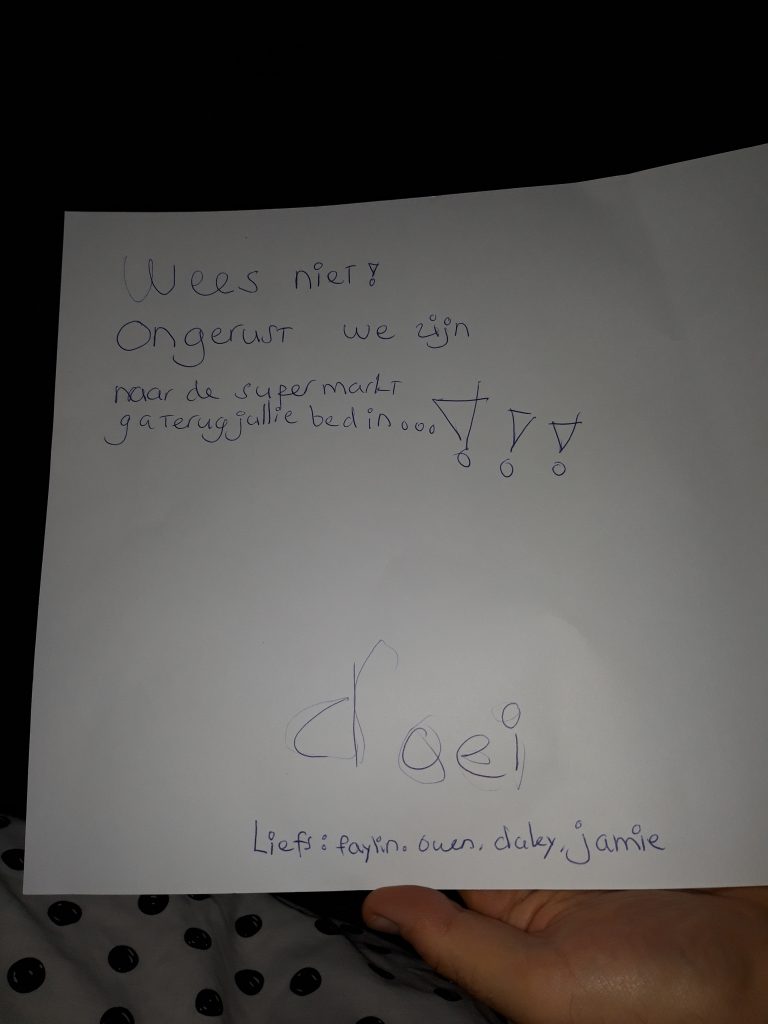 Wees niet!
Ongerust we zijn
naar de supermarkt
ga terug jullie bed in...!!!
doei
Liefs: faylin. owen. daley. jamie